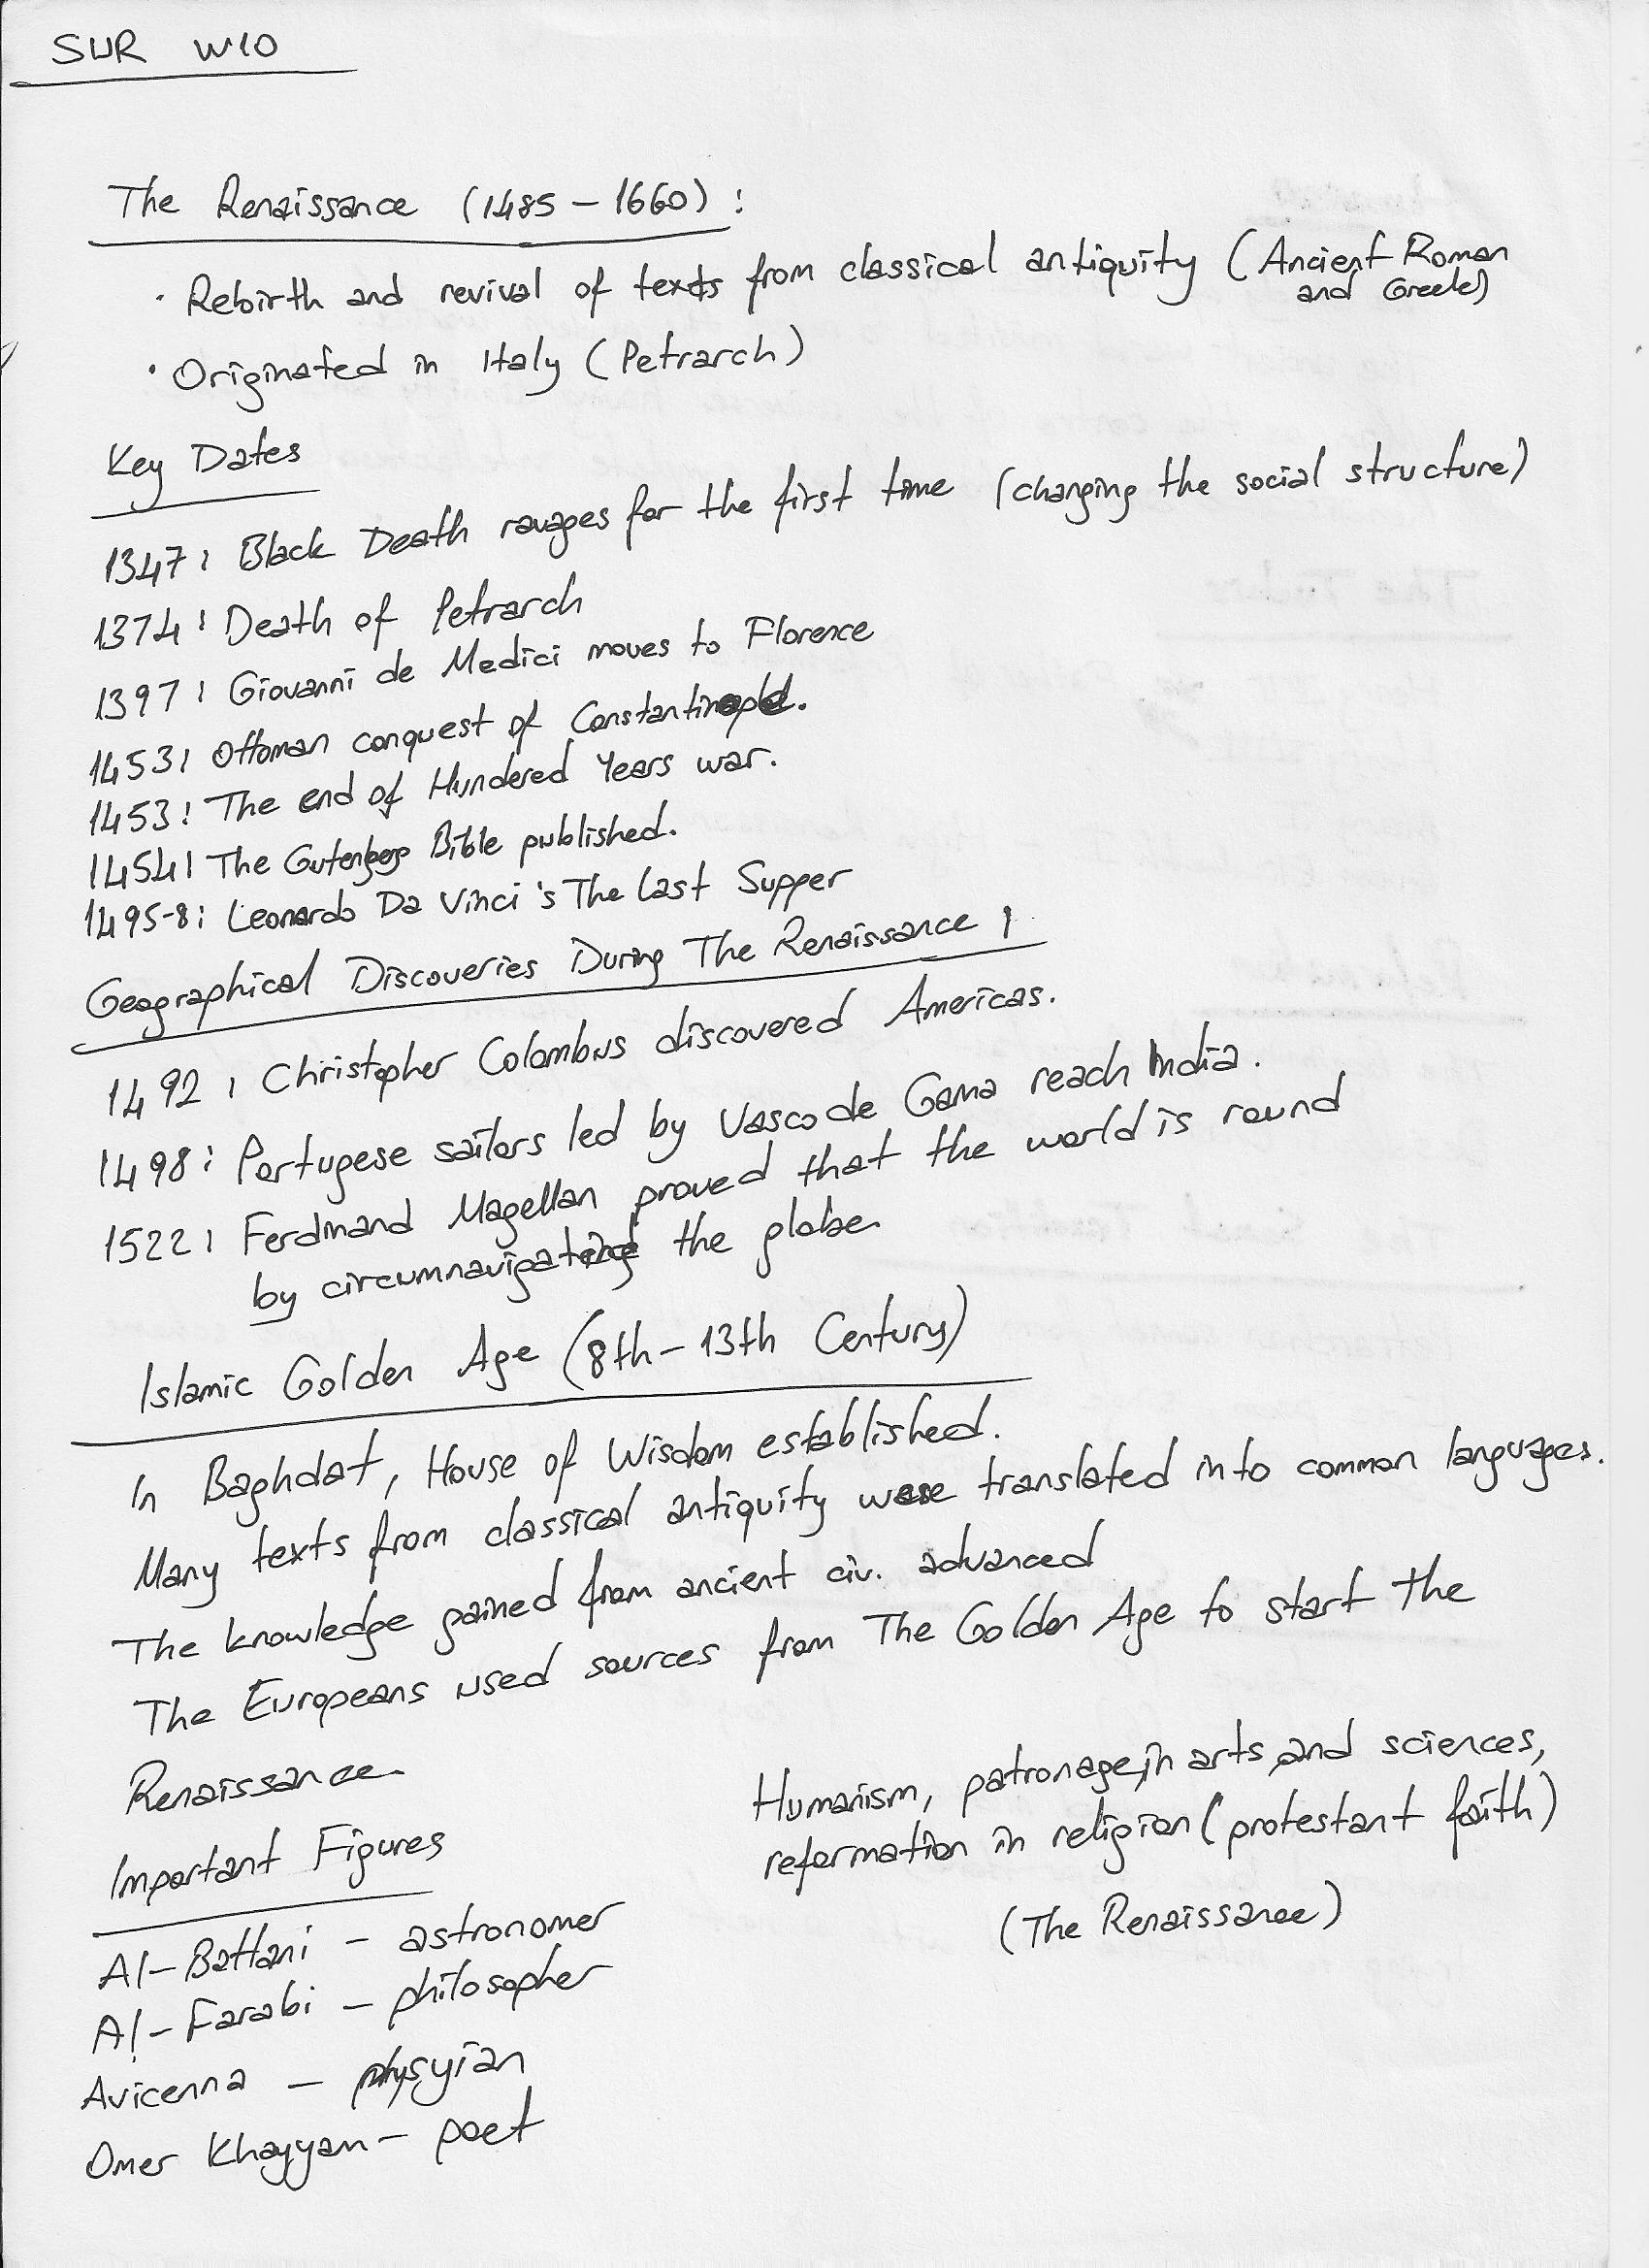 SUR W10
The Renaissance (1485 - 1660) :
· Rebirth and revival of texts from classical antiquity (Ancient Roman
and Greek)
· Originated in Italy (Petrarch)
Key Dates
1347: Black Death ravages for the first time (changing the social structure)
1374: Death of Petrarch
1397: Giovanni de Medici moves to Florence
1453: Ottoman conquest of Constantinople.
1453: The end of Hundered Years war.
1454: The Gutenberg Bible published.
1495-8: Leonardo Da Vinci's The Last Supper
Geographical Discoveries During The Renaissance :
1492: Christopher Colombus discovered Americas.
1498: Portugese sailors led by Vasco de Gama reach India.
1522: Ferdinand Magellan proved that the world is round
by circumnavigating the globe.
Islamic Golden Age (8th - 13th Century)
In Baghdat, House of Wisdom established.
Many texts from classical antiquity were translated into common languages.
The knowledge gained from ancient civ. advanced
The Europeans used sources from The Golden Age to start the
Renaissance.
Humanism, patronage in arts and sciences,
reformation in religion (protestant faith)
(The Renaissance)
Important Figures
Al-Battani - astronomer
Al-Farabi - philosopher
Avicenna - physyian
Omer Khayyam - poet